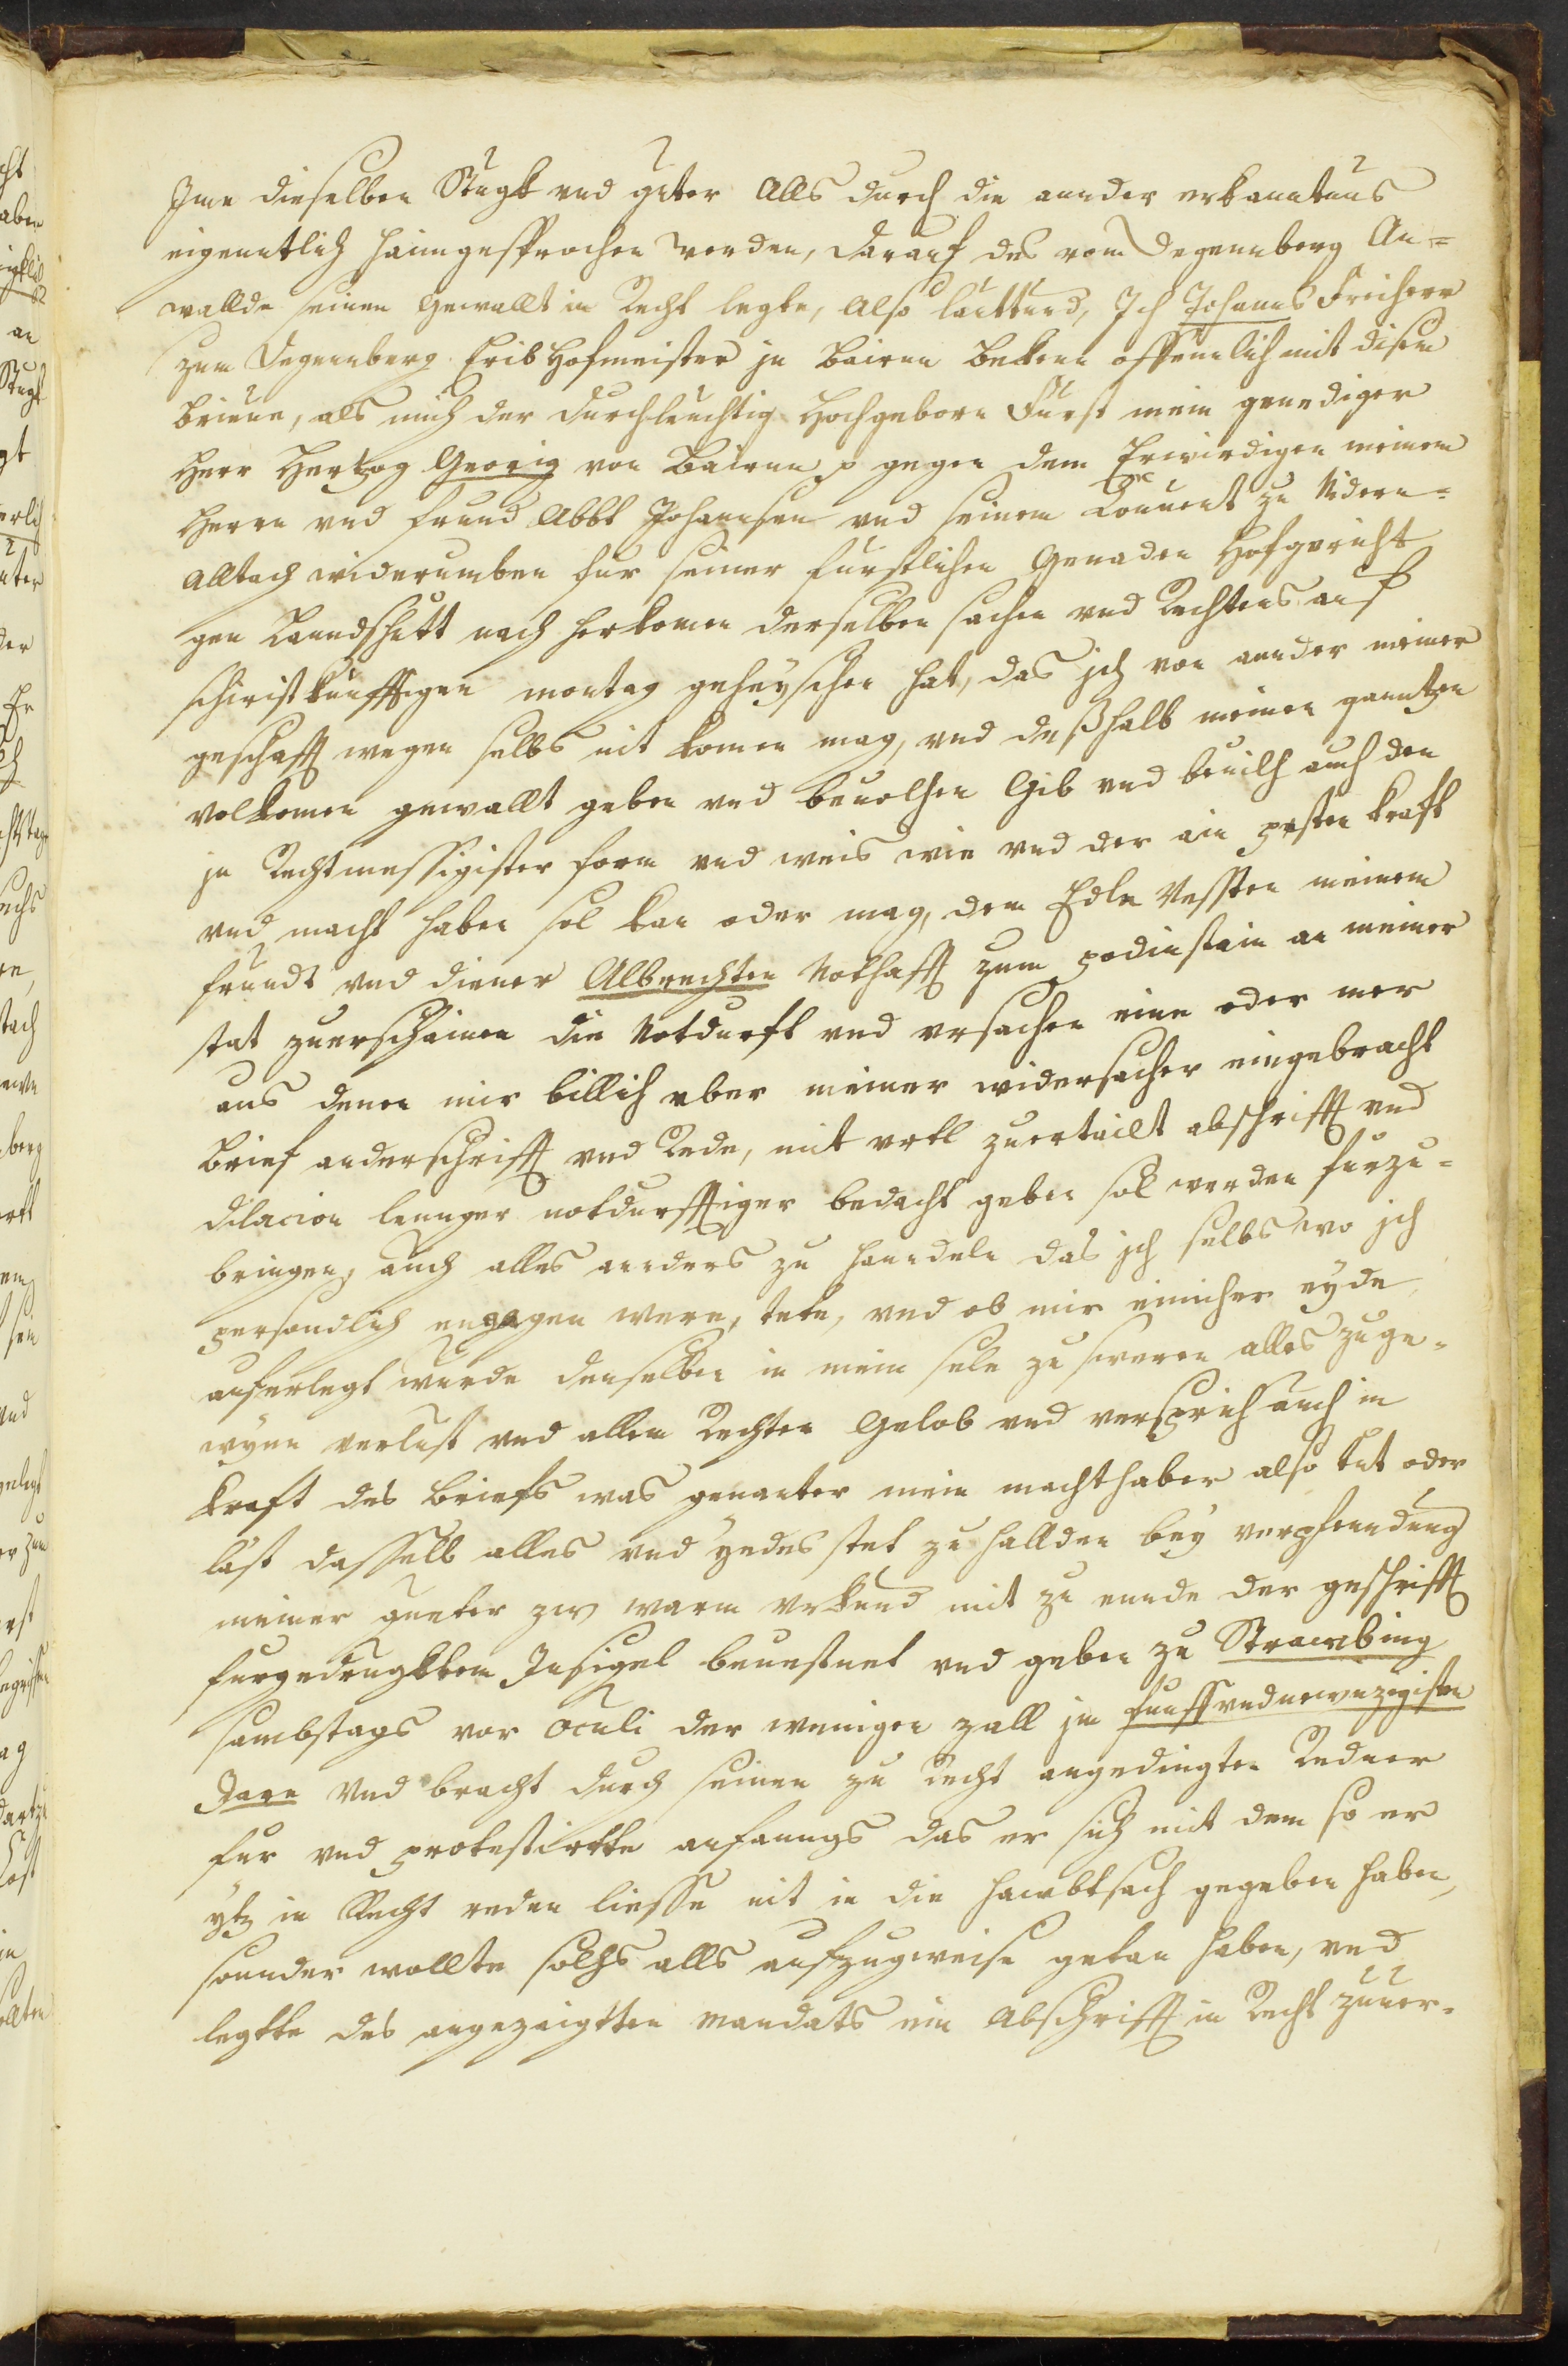 Jme dieselben Stugkt vnd güter Alls durch die annder erkanntnus
eigenntlich haimgesprochen worden, darauf des vom Degennberg An=
wallde seinen Gewallt in Recht legte, Also lauttund, Jch Johanns Freiherr
zum Degennberg Eribhofmeister jn Bairnn Bekenn offennlich mit disem
brieue, als mich der durchleuchtig Hochgeborn Fürst mein genediger
Herr Hertzog Georig von Bairnn p gegen dem Erwirdigen meinem
Herrn vnd frund Abbt Johannsen vnd seinem Conuent zu Nidern=
alltach widerumben fur seiner furstlichen Genaden Hofgericht
gen Lanndshutt nach herkomen derselben sachen vnd Rechtens auf
schiristkunfftigen montag geheyschen hat, das jch von annder meiner
geschafft wegen selbs nit komen mag, vnd deßhalb meinen ganntzen
volkomen gewallt geben vnd beuolhen Gib vnd beuilh auch den
jn Rechtmessigister form vnd weis wie vnd der ain pesten kraft
vnd macht haben sol kan oder mag, dem Edln Vessten meinem
frundt vnd diener Albrechten Nothafft zum podinstain an meiner
stat zuerscheinen die Notdurft vnd vrsachen eine oder mer
aus denen mir billich vber meiner widersacher eingebracht
brief anderschrifft vnd Rede, mit vrtl zuertailt abschrifft vnd
dilacion lennger notdurfftiger bedacht geben sol werden furzu=
bringen, auch alles annders zu hanndeln das jch selbs wo jch
persondlich engagen were, tete, vnd ob mir einicher eyde
auferlegt wurde denselben in mein sele zu sweren alles zuge=
wynn verlust vnd allen Rechten Gelob vnd versprich auch in
kraft des briefs was genanter mein machthaber also tut oder
läst dasselb alles vnd yedes stet zu hallden bey verpfenndung
meiner gueter zw warm vrkund mit zu ennde der geschrifft
furgedrugkktem Jnsigel beuestnet vnd geben zu Strawbing
sambstags vor Oculi der wenigen zall jm funffvndnewnzigisten
Jarn Vnd bracht durch seinen zu Recht angedingten Redner
fur vnd protestirtte anfanngs das er sich mit dem so er
ytz in Recht reden liesse nit in die Hawbtsach gegeben haben,
sonnder wollte solhs alls aufzugweise getan haben, vnd
legtte des angezaigtten mandats ein Abschrifft in Recht zuuer=